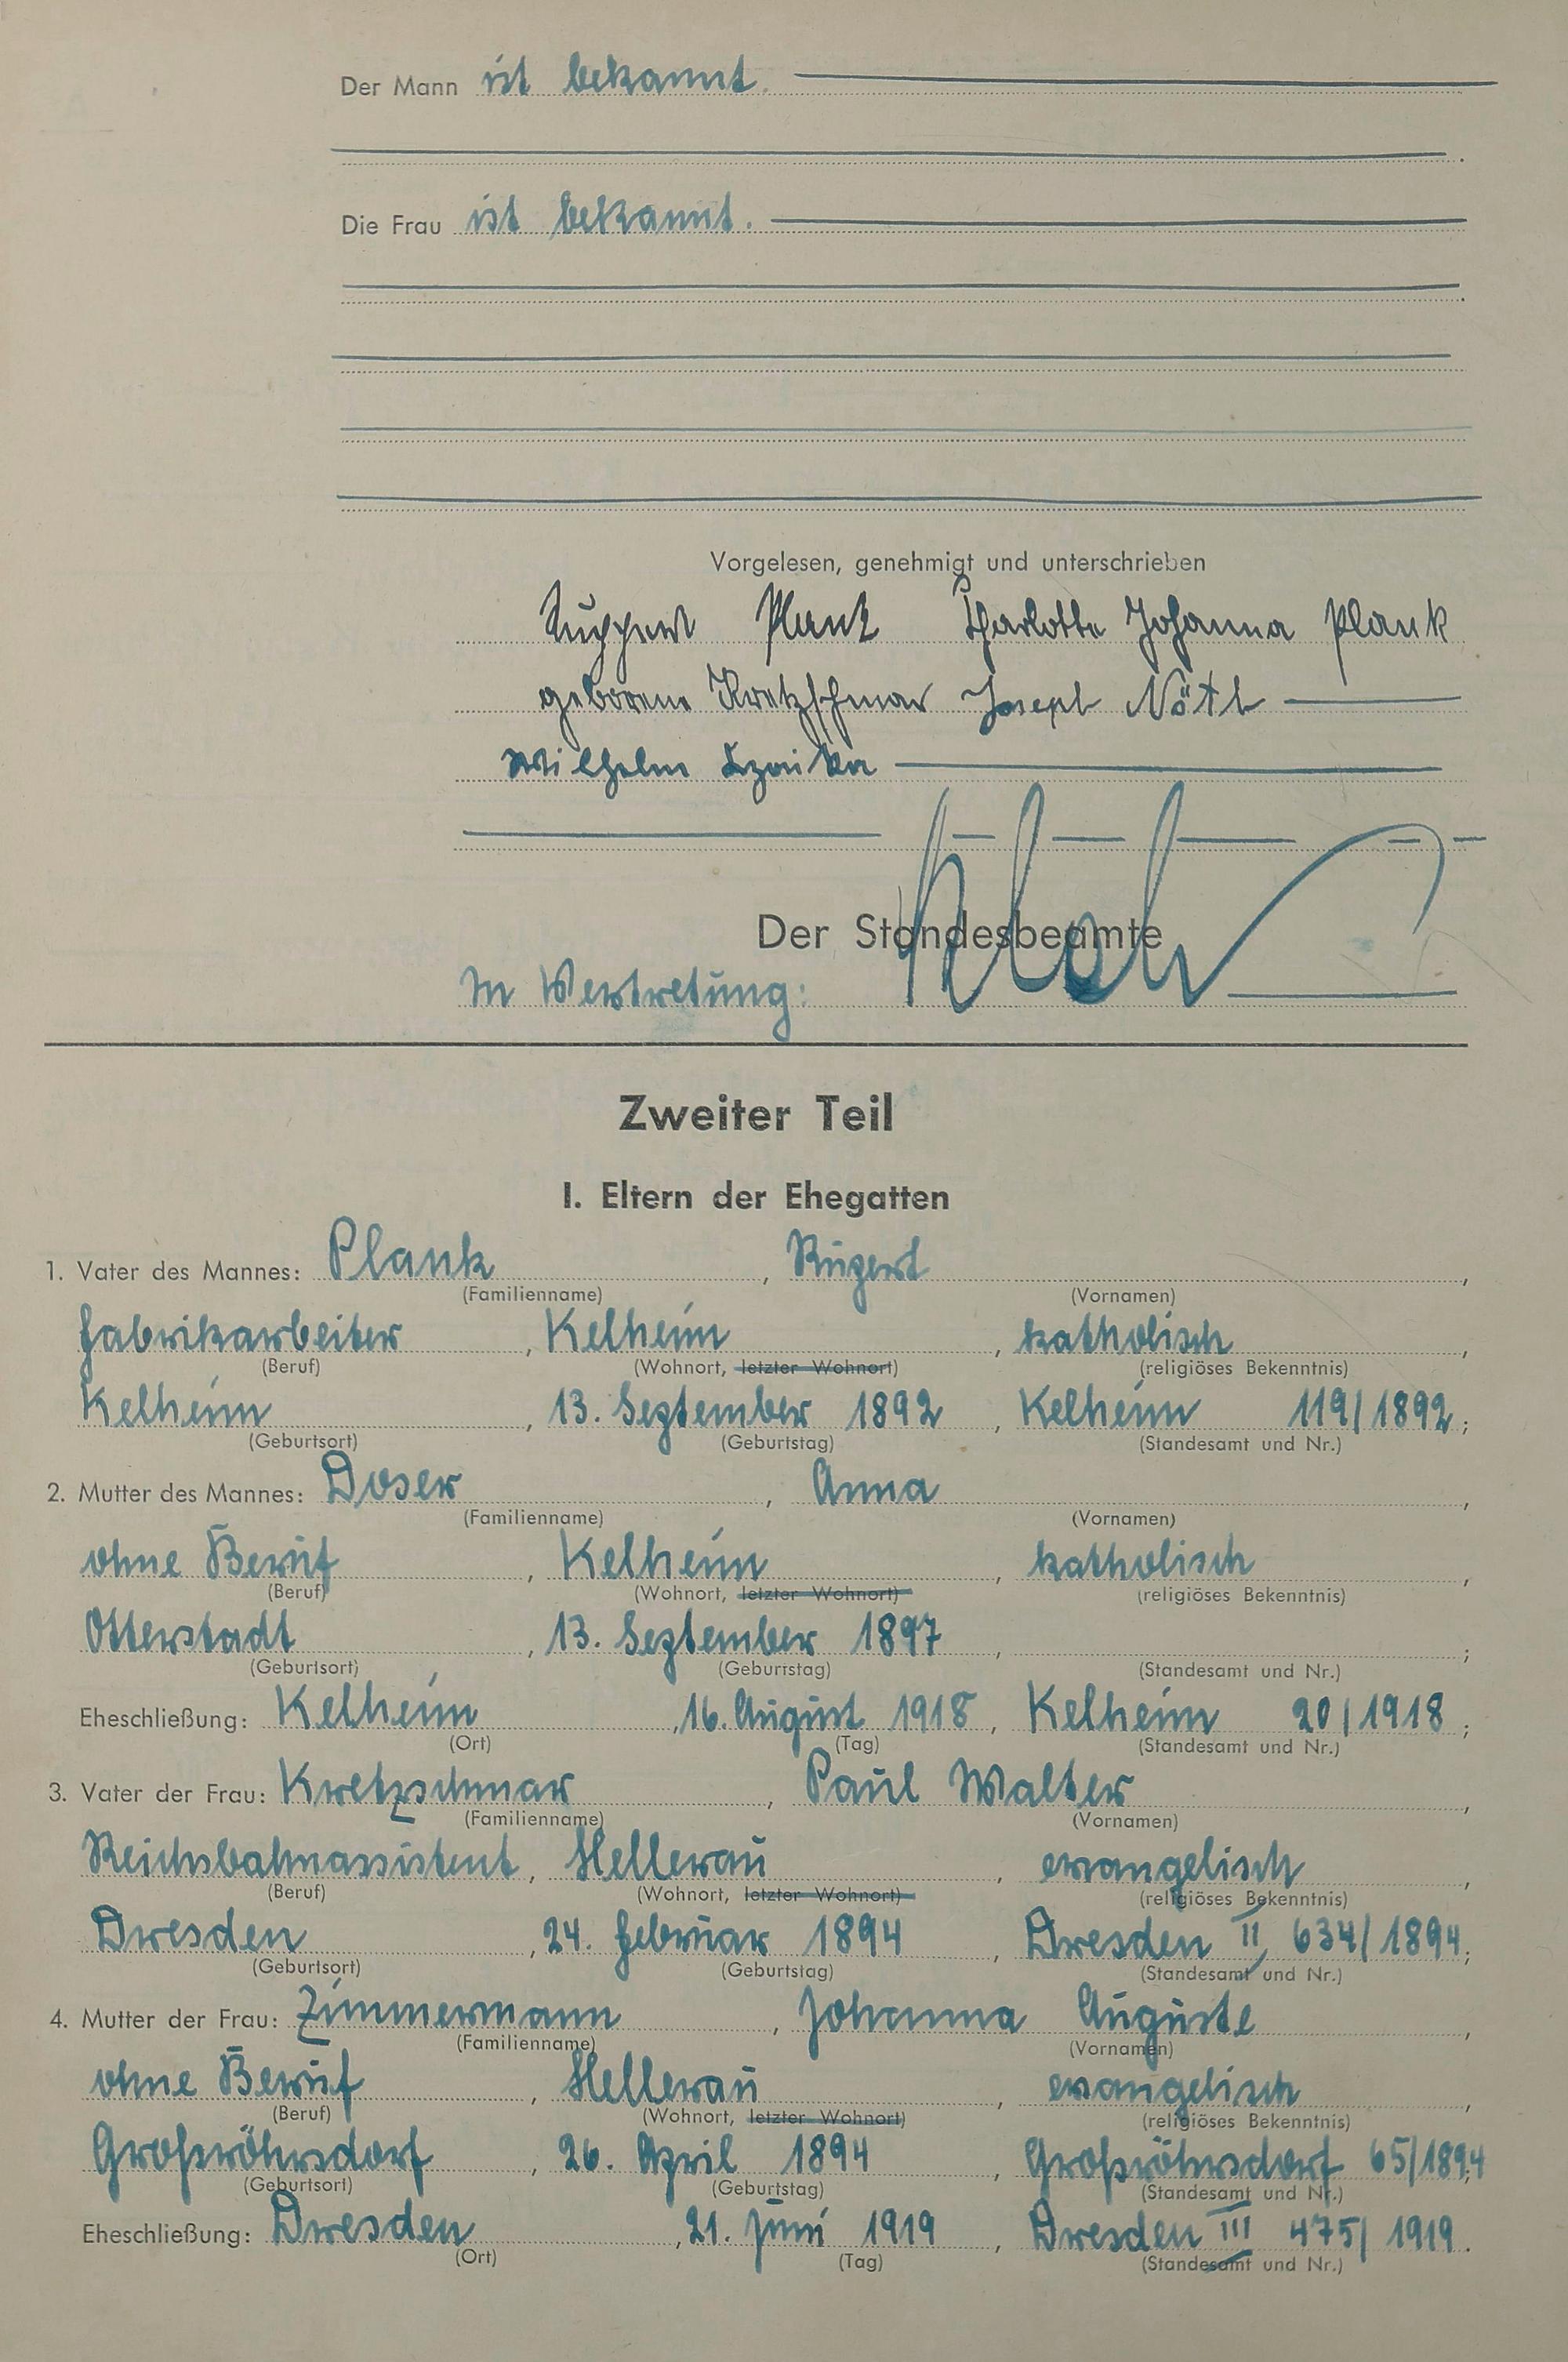 Der Mann ist bekannt.
Die Frau ist bekannt.
Vorgelesen, genehmigt und unterschrieben
Ruppert Plank Charlotte Johanna Plank
geborene Kretzschmar Joseph Nötl
Wilhelm
Der Standesbeamte
In Vertretung:
Zweiter Teil
I. Eltern der Ehegatten
1. Vater des Mannes: Plank, Rupert,
(Familienname) (Vornamen)
Fabrikarbeiter, Kelheim, katholisch,
(Beruf) (Wohnort, letzter Wohnort) (religiöses Bekenntnis)
Kelheim, 13. September 1892, Kelheim 119/1892;
(Geburtsort) (Geburtstag) (Standesamt und Nr.)
2. Mutter des Mannes: Doser, Anna,
(Familienname) (Vornamen)
ohne Beruf, Kelheim, katholisch,
(Beruf) (Wohnort, letzter Wohnort) (religiöses Bekenntnis)
Otterstadt, 13. September 1897, ;
(Geburtsort) (Geburtstag) (Standesamt und Nr.)
Eheschließung: Kelheim, 16. August 1918, Kelheim 20/1918;
(Ort) (Tag) (Standesamt und Nr.)
3. Vater der Frau: Kretzschmar, Paul Walter,
(Familienname) (Vornamen)
Reichsbahnassistent, Hellerau, evangelisch,
(Beruf) (Wohnort, letzter Wohnort) (religiöses Bekenntnis)
Dresden, 24. Februar 1894, Dresden II, 634/1894;
(Geburtsort) (Geburtstag) (Standesamt und Nr.)
4. Mutter der Frau: Zimmermann, Johanna Auguste,
(Familienname) (Vornamen)
ohne Beruf, Hellerau, evangelisch,
(Beruf) (Wohnort, letzter Wohnort) (religiöses Bekenntnis)
Großröhrsdorf, 26. April 1894, Großröhrsdorf 65/1894;
(Geburtsort) (Geburtstag) (Standesamt und Nr.)
Eheschließung: Dresden, 21. Juni 1919, Dresden III 475/1919.
(Ort) (Tag) (Standesamt und Nr.)